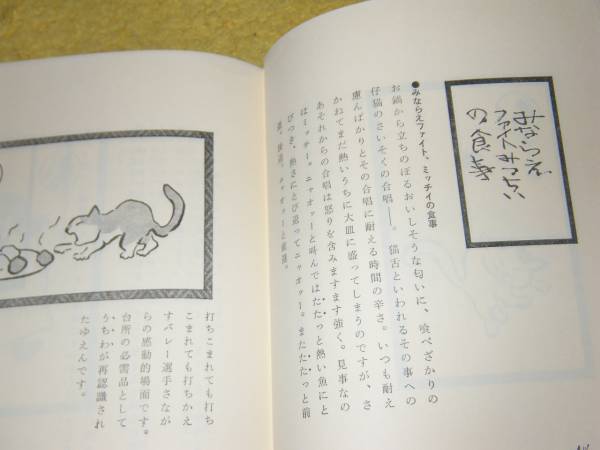 みならえ
ファイトみっちい
の食事
●みならえファイト、ミッチイの食事
お鍋から立ちのぼるおいしそうな匂いに、喰べざかりの
仔猫のさいそくの合唱――。猫舌といわれるその事への
慮んばかりとその合唱に耐える時間の辛さ。いつも耐え
かねてまだ熱いうちに大皿に盛ってしまうのですが、さ
あそれからの合唱は怒りを含みますます強く。見事なの
はミッチー。ニャオァーと叫んではたたっと熱い魚にと
びつき、熱さにとび退ってニャオァー。またたたっと前
進、後退、ニャオァーと前進。
打ちこまれても打ち
こまれても打ちかえ
すバレー選手さなが
らの感動的場面です。
台所の必需品として
うちわが再認識され
たゆえんです。